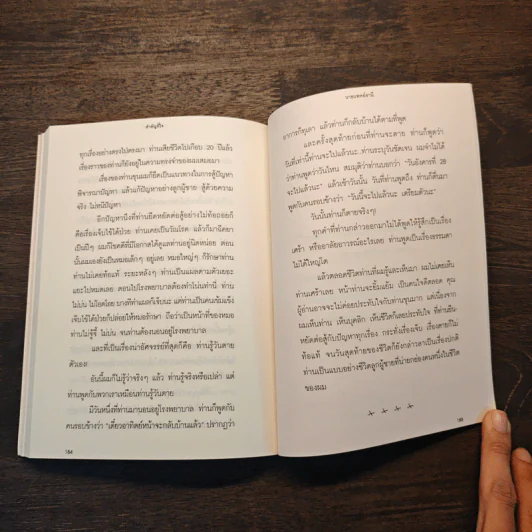 สำคัญที่ใจ
ทุกเรื่องอย่างตรงไปตรงมา ท่านเสียชีวิตไปเกือบ 20 ปีแล้ว
เรื่องราวของท่านก็ยังอยู่ในความทรงจำของผมเสมอมา
เรื่องของท่านขุนผมก็ยึดถือเป็นแนวทางในการสู้ปัญหา
พิจารณาปัญหา แล้วแก้ปัญหาอย่างลูกผู้ชาย สู้ด้วยความ
จริง ไม่หนีปัญหา
อีกปัญหานึงที่ท่านยืดหยัดต่อสู้อย่างไม่ท้อถอยก็
คือเรื่องเจ็บไข้ได้ป่วย ท่านเคยเป็นวัณโรค แล้วก็มาฉีดยา
เป็นปีๆ ผมก็โชคดีที่มีโอกาสได้ดูแลท่านอยู่นิดหน่อย ตอน
นั้นผมเองยังเป็นหมอเด็กๆ อยู่เลย หมอใหญ่ๆ ก็รักษาท่าน
ท่านไม่เคยท้อแท้ ระยะหลังๆ ท่านเป็นแผลตามตัวเยอะ
แยะไปหมดเลย ตอนไปโรงพยาบาลต้องทำไปเท่านี้ ท่าน
ไม่บ่น ไม่โอดโอย บางทีท่านผมก็เจ็บนะ แต่ท่านเป็นคนเข้มแข็ง
เจ็บไข้ได้ป่วยก็ปล่อยให้หมอรักษา ถือว่าเป็นหน้าที่ของหมอ
ท่านไม่จู้จี้ ไม่บ่น จนท่านต้องนอนอยู่โรงพยาบาล
และที่เป็นเรื่องน่าอัศจรรย์ที่สุดก็คือ ท่านรู้วันตาย
ตัวเอง!
อันนี้ผมก็ไม่รู้ว่าจริงๆ แล้ว ท่านรู้จริงหรือเปล่า แต่
ท่านพูดกับพวกเราเหมือนท่านรู้วันตาย
มีวันหนึ่งที่ท่านมานอนอยู่โรงพยาบาล ท่านก็พูดกับ
คนรอบข้างว่า "เดี๋ยวอาทิตย์หน้าจะกลับบ้านแล้ว" ปรากฏว่า
184
นายแพทย์
อาการก็ทุเลา แล้วท่านก็กลับบ้านได้ตามที่พูด
และครั้งสุดท้ายก่อนที่ท่านจะตาย ท่านก็พูดว่า
วันที่เท่านี้ท่านจะไปแล้วนะ..ท่านระบุวันชัดเจน ผมจำไม่ได้
ว่าท่านพูดว่าวันไหน สมมุติว่าท่านบอกว่า "วันอังคารที่ 28
จะไปแล้วนะ" แล้วเช้าวันนั้น วันที่ท่านพูดถึง ท่านก็ตื่นมา
พูดกับคนรอบข้างว่า "วันนี้จะไปแล้วนะ เตรียมตัวนะ"
วันนั้นท่านก็ตายจริงๆ!
ทุกคำที่ท่านกล่าวออกมาไม่ได้พูดให้รู้สึกเป็นเรื่อง
เศร้า หรืออาลัยอาวรณ์อะไรเลย ท่านพูดเป็นเรื่องธรรมดา
ไม่ได้ใหญ่โต
แล้วตลอดชีวิตท่านที่ผมรู้และเห็นมา ผมไม่เคยเห็น
ท่านเศร้าเลย หน้าท่านจะยิ้มแย้ม เป็นคนใจดีตลอด คุณ
ผู้อ่านอาจจะไม่ค่อยประทับใจกับท่านขุนมาก แต่เนื่องจาก
ผมเห็นท่าน เห็นบุคลิก เห็นชีวิตก็เลยประทับใจ ที่ท่านยืน
หยัดต่อสู้กับปัญหาทุกเรื่อง กระทั่งเรื่องเจ็บ เรื่องตายก็ไม่
ท้อแท้ จนวันสุดท้ายของชีวิตก็ยังกล่าวลาเป็นเรื่องปกติ
ท่านเป็นแบบอย่างชีวิตลูกผู้ชายที่น่ายกย่องคนหนึ่งในชีวิต
ของผม
185